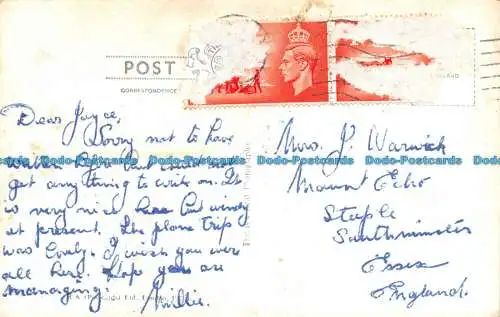 POST
CORRESPONDENCE
Dear Joyce,
Sorry not to have
written before but could not
get anything to write on. It
is very nice here but windy
at present. The plane trip
was lovely. I wish you were
all here. Hope you are
managing.
Millie.
Mrs. J. Warwick
Mount Echo
Steeple
Southminster
Essex
England.
Dodo-Postcards Dodo-Postcards Dodo-Postcards Dodo-Postcards Dodo-Postcards